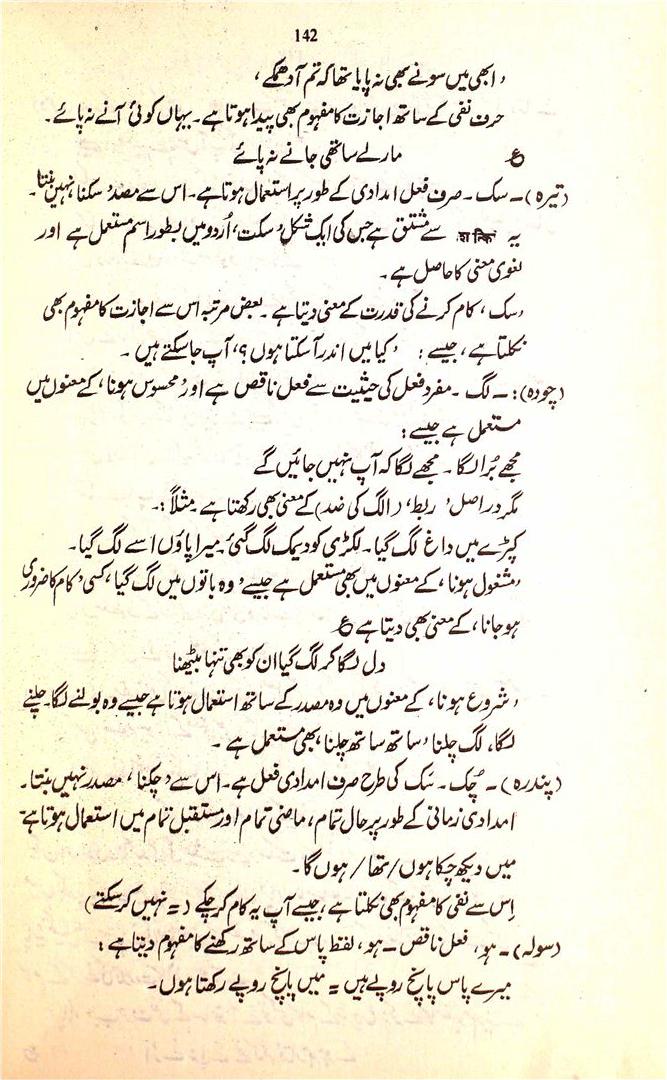 142
' ابھی میں سونے بھی نہ پایا تھا کہ تم آدھمکے ،
حرف نفی کے ساتھ اجازت کا مفہوم بھی پیدا ہوتا ہے۔ یہاں کوئی آنے نہ پائے۔
ع مارلے ساتھی جانے نہ پائے
(تیرہ) ۔ سک ۔ صرف فعل امدادی کے طور پر استعمال ہوتا ہے۔ اس سے مصدر سکنا نہیں بنتا۔
یہ शक्ति سے مشتق ہے جس کی ایک شکل ' سکت ، اُردو میں بطور اسم مستعمل ہے اور
لغوی معنی کا حاصل ہے ۔
' سک ، کام کرنے کی قدرت کے معنی دیتا ہے ۔ بعض مرتبہ اس سے اجازت کا مفہوم بھی
نکلتا ہے ، جیسے : ' کیا میں اندر آسکتا ہوں ؟ ، آپ جاسکتے ہیں ۔
(چودہ) : ۔ لگ ۔ مفرد فعل کی حیثیت سے فعل ناقص ہے اور ' محسوس ہونا ، کے معنوں میں
مستعمل ہے جیسے :
مجھے بُرا لگا ۔ مجھے لگا کہ آپ نہیں جائیں گے
مگر دراصل ' ربط ، (الگ کی ضد) کے معنی بھی رکھتا ہے ۔ مثلاً :۔
کپڑے میں داغ لگ گیا۔ لکڑی کو دیمک لگ گئی۔ میرا پاؤں اسے لگ گیا۔
' مشغول ہونا ، کے معنوں میں بھی مستعمل ہے جیسے ' وہ باتوں میں لگ گیا ، کسی ' کام کا ضروری
ہوجانا ، کے معنی بھی دیتا ہے ع
دل لگا کر لگ گیا ان کو بھی تنہا بیٹھنا
' شروع ہونا ، کے معنوں میں وہ مصدر کے ساتھ استعمال ہوتا ہے جیسے وہ بولنے لگا۔ چلنے
لگا، لگ چلنا ' ساتھ ساتھ چلنا ، بھی مستعمل ہے ۔
(پندرہ) ۔ چُک ۔ سَک کی طرح صرف امدادی فعل ہے۔ اس سے ' چکنا ، مصدر نہیں بنتا۔
امدادی زمانی کے طور پر حال تمام ، ماضی تمام اور مستقبل تمام میں استعمال ہوتا ہے
میں دیکھ چکا ہوں / تھا / ہوں گا ۔
اِس سے نفی کا مفہوم بھی نکلتا ہے ، جیسے آپ یہ کام کرچکے ( = نہیں کرسکتے )
(سولہ) ۔ ہو ، فعل ناقص ۔ ہو ، لفظ پاس کے ساتھ رکھنے کا مفہوم دیتا ہے :
میرے پاس پانچ روپے ہیں = میں پانچ روپے رکھتا ہوں۔